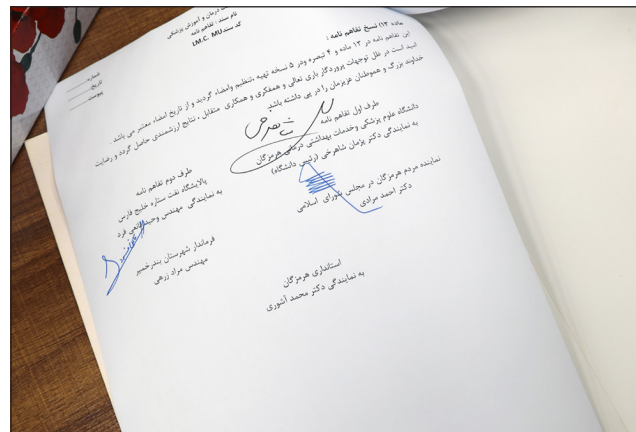 درمان و آموزش پزشکی
نام سند : تفاهم نامه
کد سند I.M.C. MU
شماره:
تاریخ:
پیوست
ماده ۱۳) نسخ تفاهم نامه :
این تفاهم نامه در ۱۳ ماده و ۴ تبصره ودر ۵ نسخه تهیه ،تنظیم وامضاء گردید و از تاریخ امضاء معتبر می باشد .
امید است در ظل توجهات پروردگار باری تعالی و همفکری و همکاری متقابل ، نتایج ارزشمندی حاصل گردد و رضایت
خداوند بزرگ و هموطنان عزیزمان را در پی داشته باشد.
طرف اول تفاهم نامه
دانشگاه علوم پزشکی وخدمات بهداشتی درمانی هرمزگان
به نمایندگی دکتر پژمان شاهرخی (رئیس دانشگاه)
طرف دوم تفاهم نامه
پالایشگاه نفت ستاره خلیج فارس
به نمایندگی مهندس وحید فرد
نماینده مردم هرمزگان در مجلس شورای اسلامی
دکتر احمد مرادی
فرماندار شهرستان بندرخمیر
مهندس مراد زرهی
استانداری هرمزگان
به نمایندگی دکتر محمد آشوری